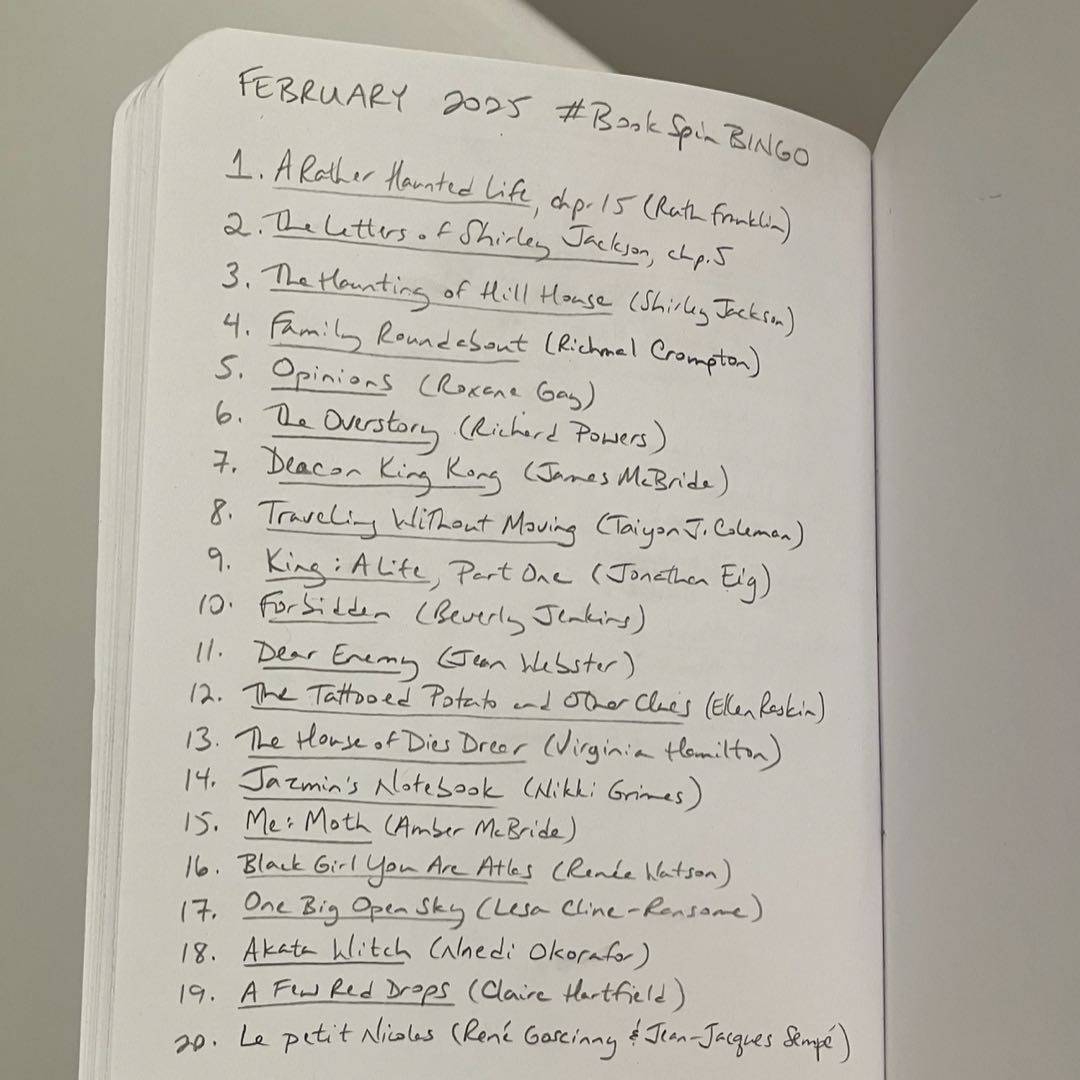 FEBRUARY 2025 #BookSpinBINGO
1. A Rather Haunted Life, chp. 15 (Ruth Franklin)
2. The Letters of Shirley Jackson, chp. 5
3. The Haunting of Hill House (Shirley Jackson)
4. Family Roundabout (Richmal Crompton)
5. Opinions (Roxane Gay)
6. The Overstory (Richard Powers)
7. Deacon King Kong (James McBride)
8. Traveling Without Moving (Taiyon J. Coleman)
9. King: A Life, Part One (Jonathan Eig)
10. Forbidden (Beverly Jenkins)
11. Dear Enemy (Jean Webster)
12. The Tattooed Potato and Other Clues (Ellen Raskin)
13. The House of Dies Drear (Virginia Hamilton)
14. Jazmin's Notebook (Nikki Grimes)
15. Me: Moth (Amber McBride)
16. Black Girl You Are Atlas (Renée Watson)
17. One Big Open Sky (Lesa Cline-Ransome)
18. Akata Witch (Nnedi Okorafor)
19. A Few Red Drops (Claire Hartfield)
20. Le petit Nicolas (René Goscinny & Jean-Jacques Sempé)